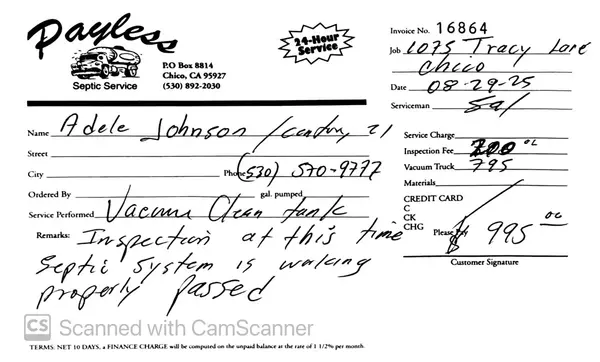 Payless
Septic Service
P.O Box 8814
Chico, CA 95927
(530) 892-2030
24-Hour
Service
Invoice No. 16864
Job 1075 Tracy Lane
Chico
Date 08-29-25
Serviceman Sal
Name Adele Johnson / Century 21
Street
City Phone (530) 570-9777
Ordered By gal. pumped
Service Performed Vacuum Clean tank
Remarks: Inspection at this time
Septic System is working
properly passed
Service Charge
Inspection Fee 200 00
Vacuum Truck 795
Materials
CREDIT CARD
C
CK
CHG Please Pay $ 995 00
Customer Signature
TERMS: NET 10 DAYS, a FINANCE CHARGE will be computed on the unpaid balance at the rate of 1 1/2% per month.
CS Scanned with CamScanner